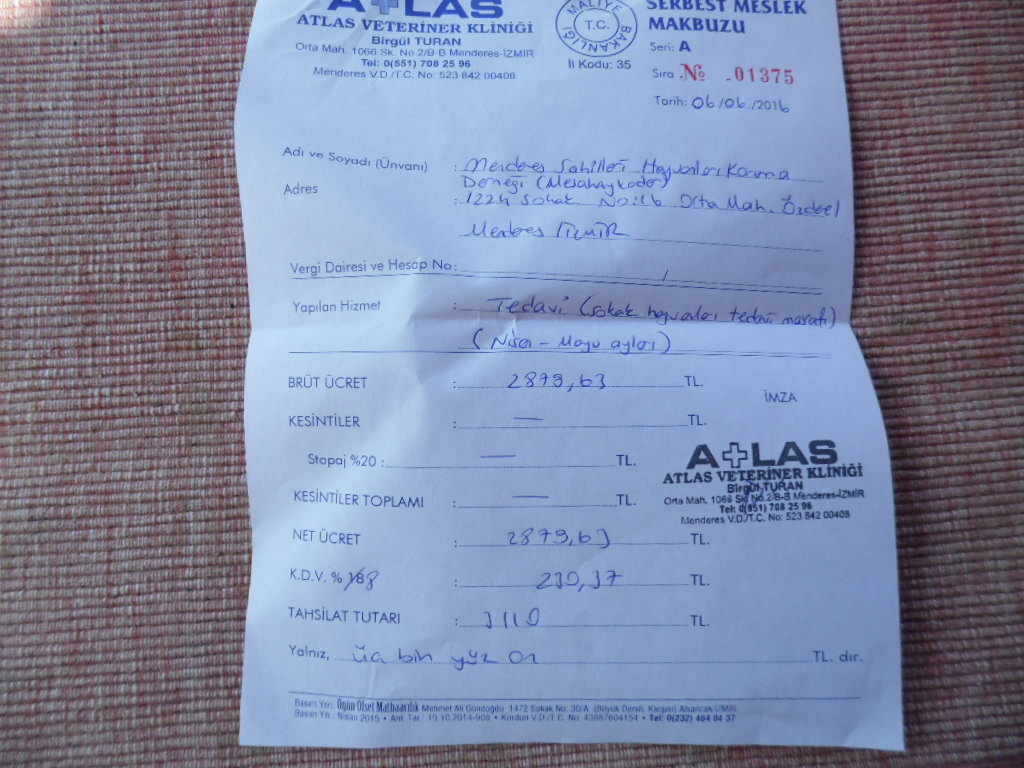 ATLAS
ATLAS VETERİNER KLİNİĞİ
Birgül TURAN
Orta Mah. 1066 Sk. No.2/B-B Menderes-İZMİR
Tel: 0(551) 708 25 96
Menderes V.D./T.C. No: 523 842 00408
MALİYE BAKANLIĞI
T.C.
İl Kodu: 35
SERBEST MESLEK
MAKBUZU
Seri: A
Sıra № 01375
Tarih: 06/06/2016
Adı ve Soyadı (Ünvanı) : Menderes Sahilleri Hayvanları Koruma
Derneği (Mesahaykoder)
Adres : 1224 Sokak No:16 Orta Mah. Özdere/
Menderes İZMİR
Vergi Dairesi ve Hesap No: /
Yapılan Hizmet : Tedavi (sokak hayvanları tedavi masrafı)
(Nisan - Mayıs ayları)
BRÜT ÜCRET : 2879,63 TL.
İMZA
KESİNTİLER : — TL.
Stopaj %20 : — TL.
KESİNTİLER TOPLAMI : — TL.
NET ÜCRET : 2879,63 TL.
K.D.V. % 18 8 : 230,37 TL.
TAHSİLAT TUTARI : 3110 TL.
Yalnız, üç bin yüz on TL. dır.
ATLAS
ATLAS VETERİNER KLİNİĞİ
Birgül TURAN
Orta Mah. 1066 Sk. No.2/B-B Menderes-İZMİR
Tel: 0(551) 708 25 96
Menderes V.D./T.C. No: 523 842 00408
Basım Yeri: Ögün Ofset Matbaacılık Mehmet Ali Gündoğdu 1472 Sokak No: 30/A (Büyük Dersh. Karşısı) Alsancak/İZMİR
Basım Yılı: Nisan 2015 • Ant. Tar.: 19.10.2014-908 • Kordon V.D./T.C. No: 43087604154 • Tel: 0(232) 464 04 37